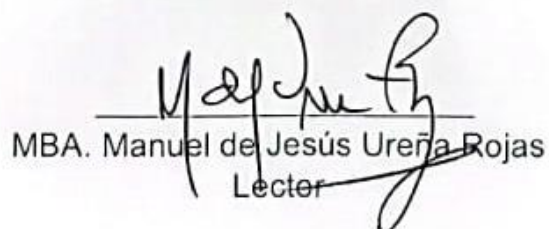 MBA. Manuel de Jesús Ureña Rojas
Lector